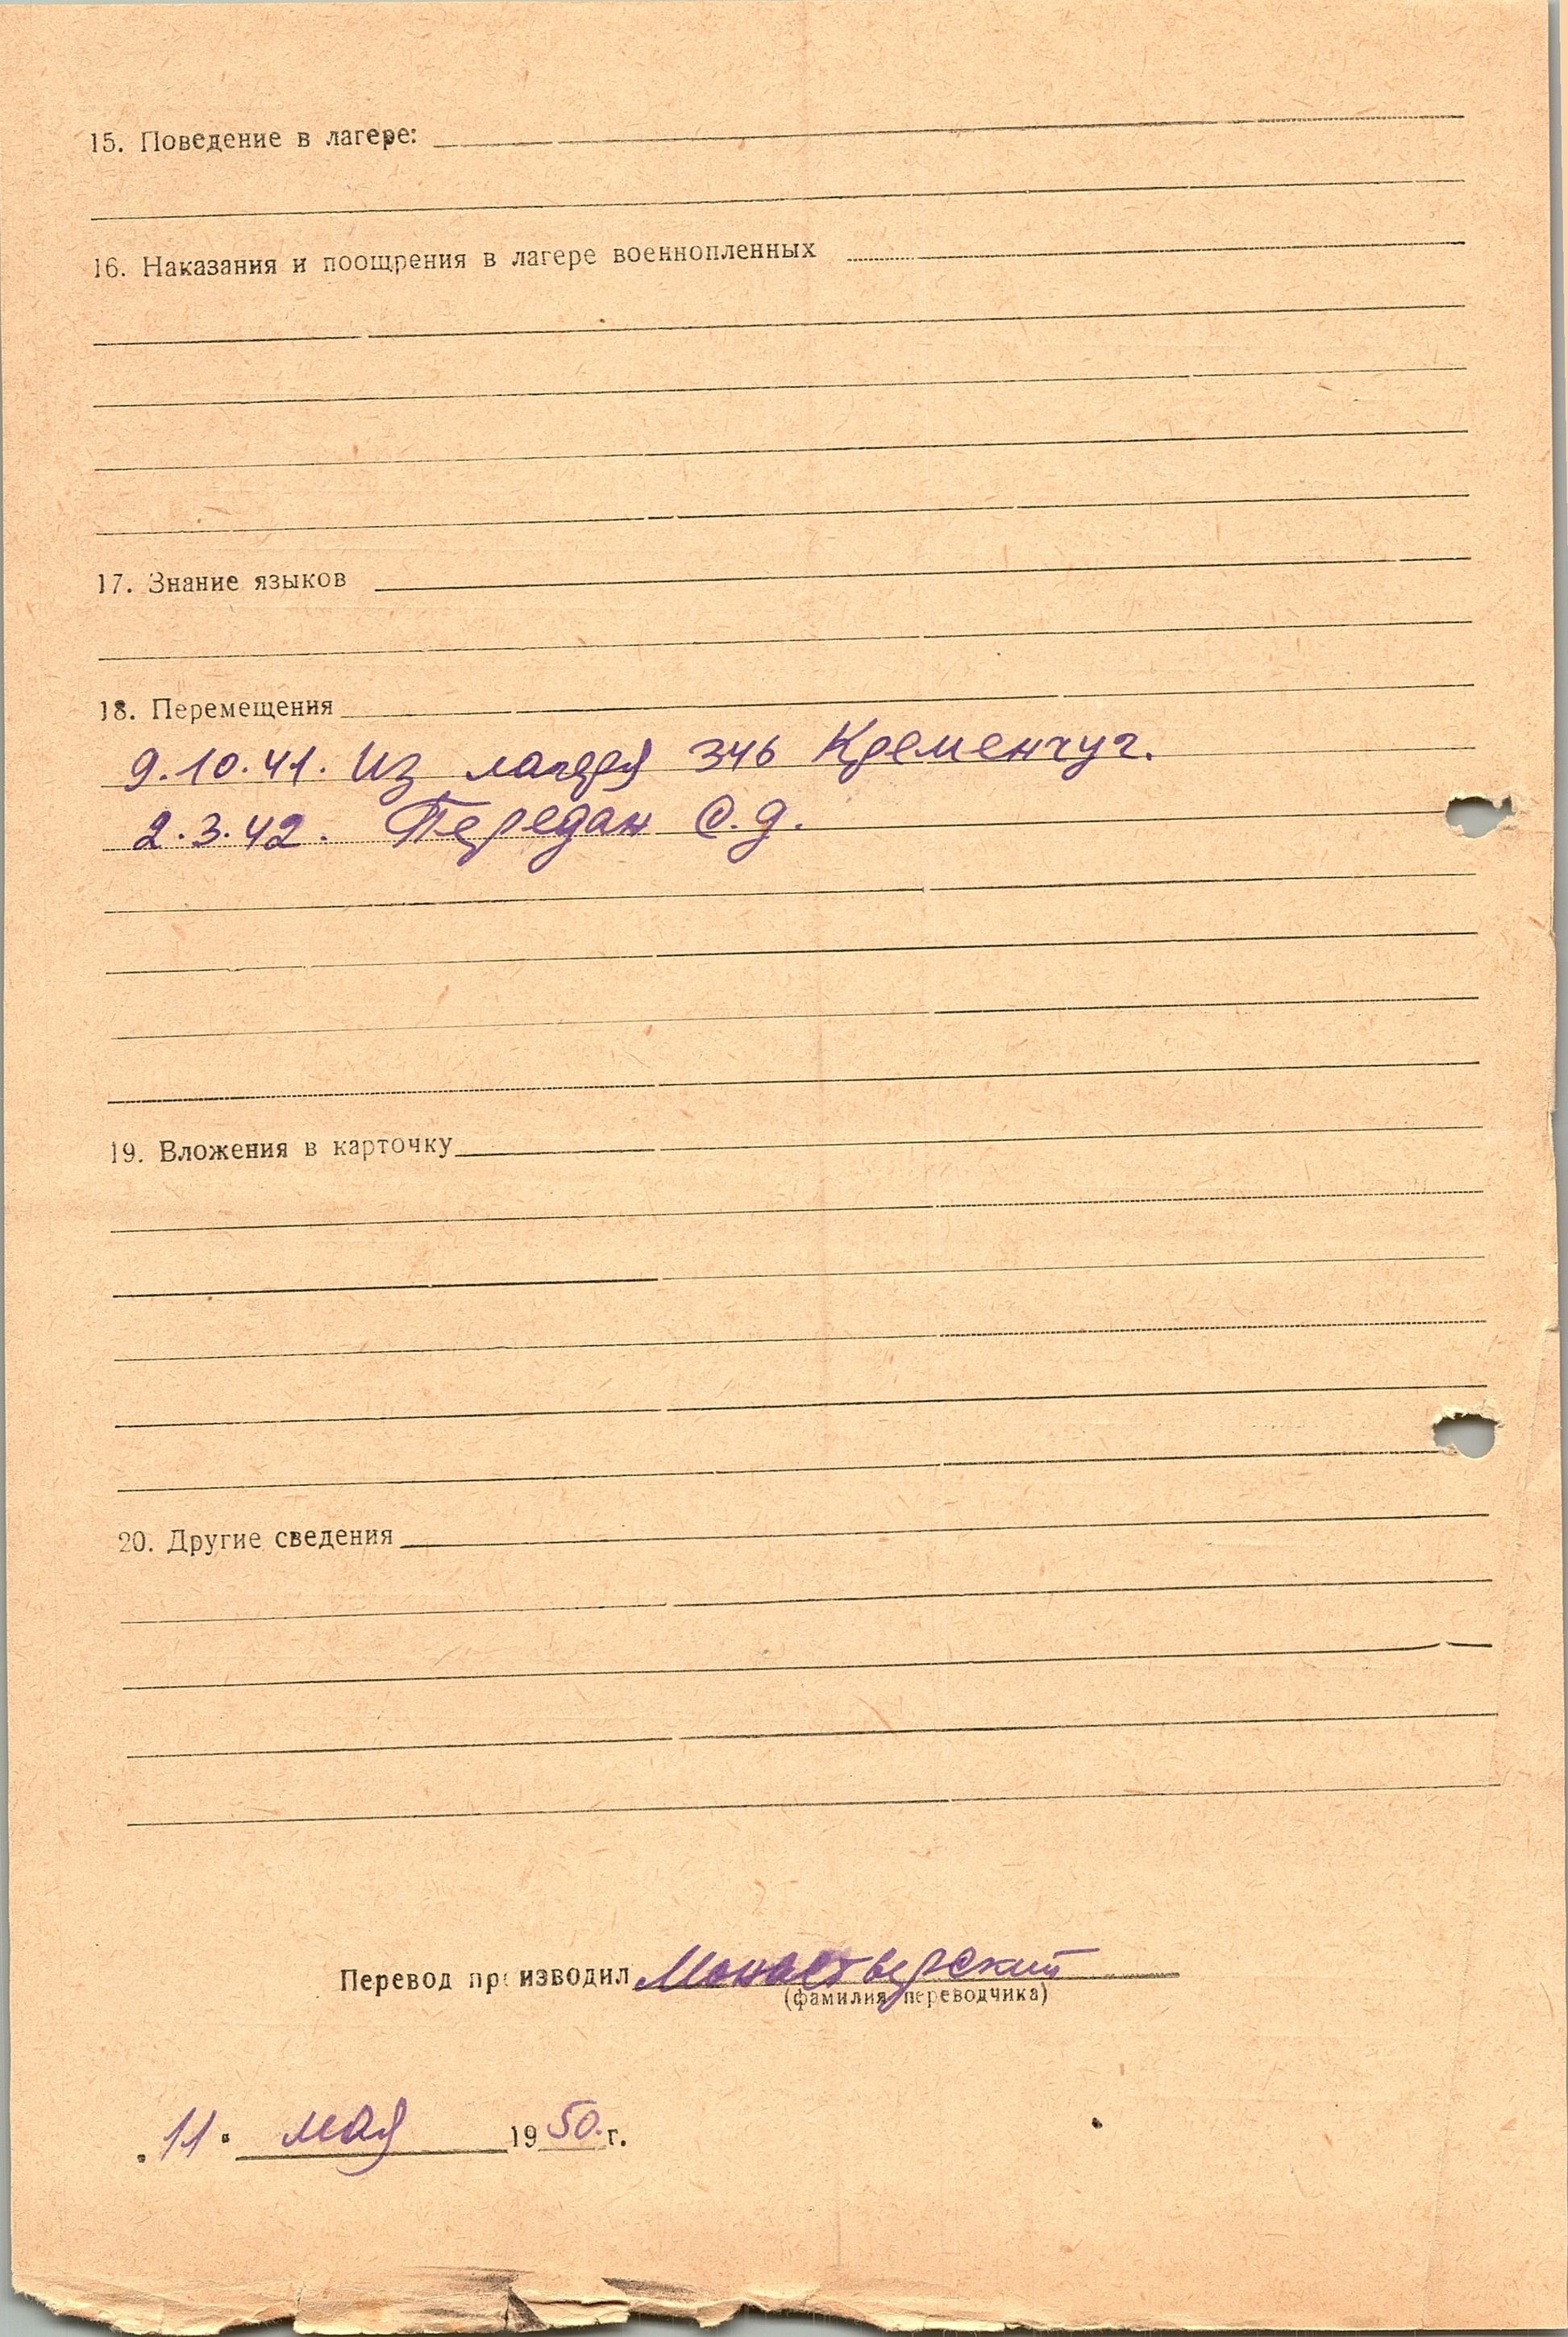 15. Поведение в лагере:
16. Наказания и поощрения в лагере военнопленных
17. Знание языков
18. Перемещения
9.10.41. Из лагеря 346 Кременчуг.
2.3.42. Передан С.Д.
19. Вложения в карточку
20. Другие сведения
Перевод производил Монастверский
(фамилия переводчика)
„11" мая 1950 г.